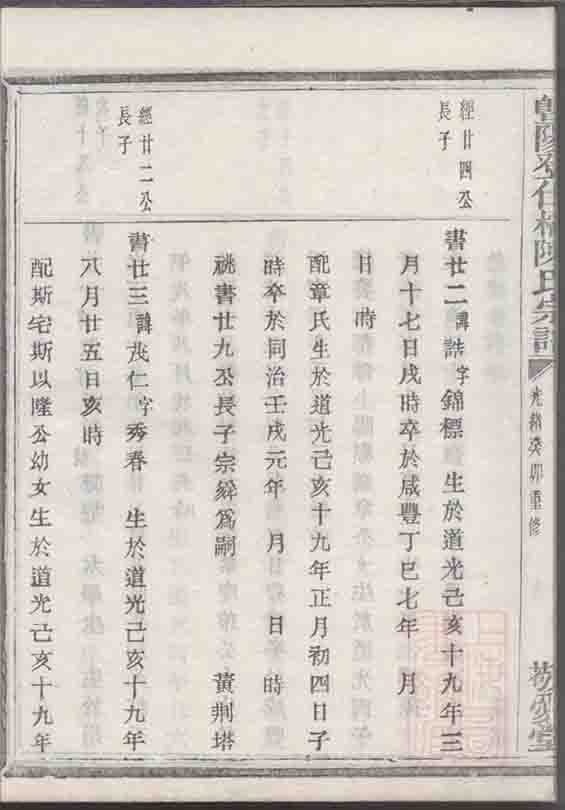 暨陽孝仁橋陳氏宗譜
光緒癸卯重修
敬愛堂
經廿四公
長子
書廿二諱誥字錦標生於道光己亥十九年三
月十七日戌時卒於咸豐丁巳七年 月
日 時
配章氏生於道光己亥十九年正月初四日子
時卒於同治壬戌元年 月 日 時
祧書廿九公長子宗舜爲嗣 黃荆塔
經廿二公
長子
書廿三諱茂仁字秀春 生於道光己亥十九年
八月廿五日亥時
配斯宅斯以隆公幼女生於道光己亥十九年